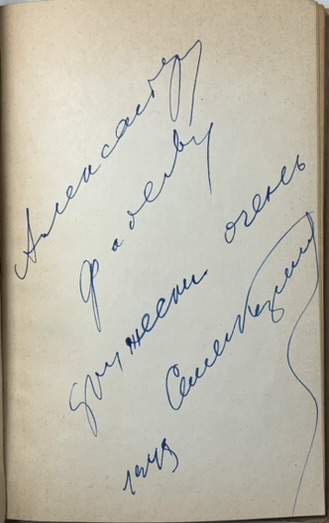 Александру
Фадееву
дружески очень
Семен Кирсанов
1948